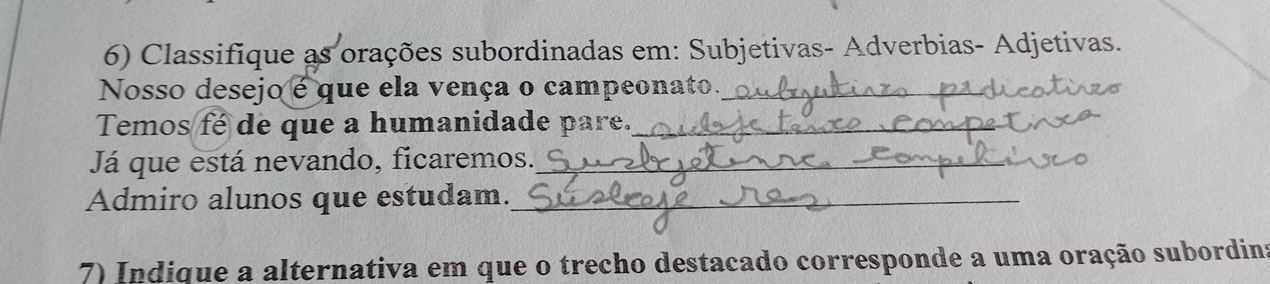 6) Classifique as orações subordinadas em: Subjetivas- Adverbias- Adjetivas.
Nosso desejo é que ela vença o campeonato. subjetivas predicativas
Temos fé de que a humanidade pare. competiva
Já que está nevando, ficaremos.
Admiro alunos que estudam.
7) Indique a alternativa em que o trecho destacado corresponde a uma oração subordina